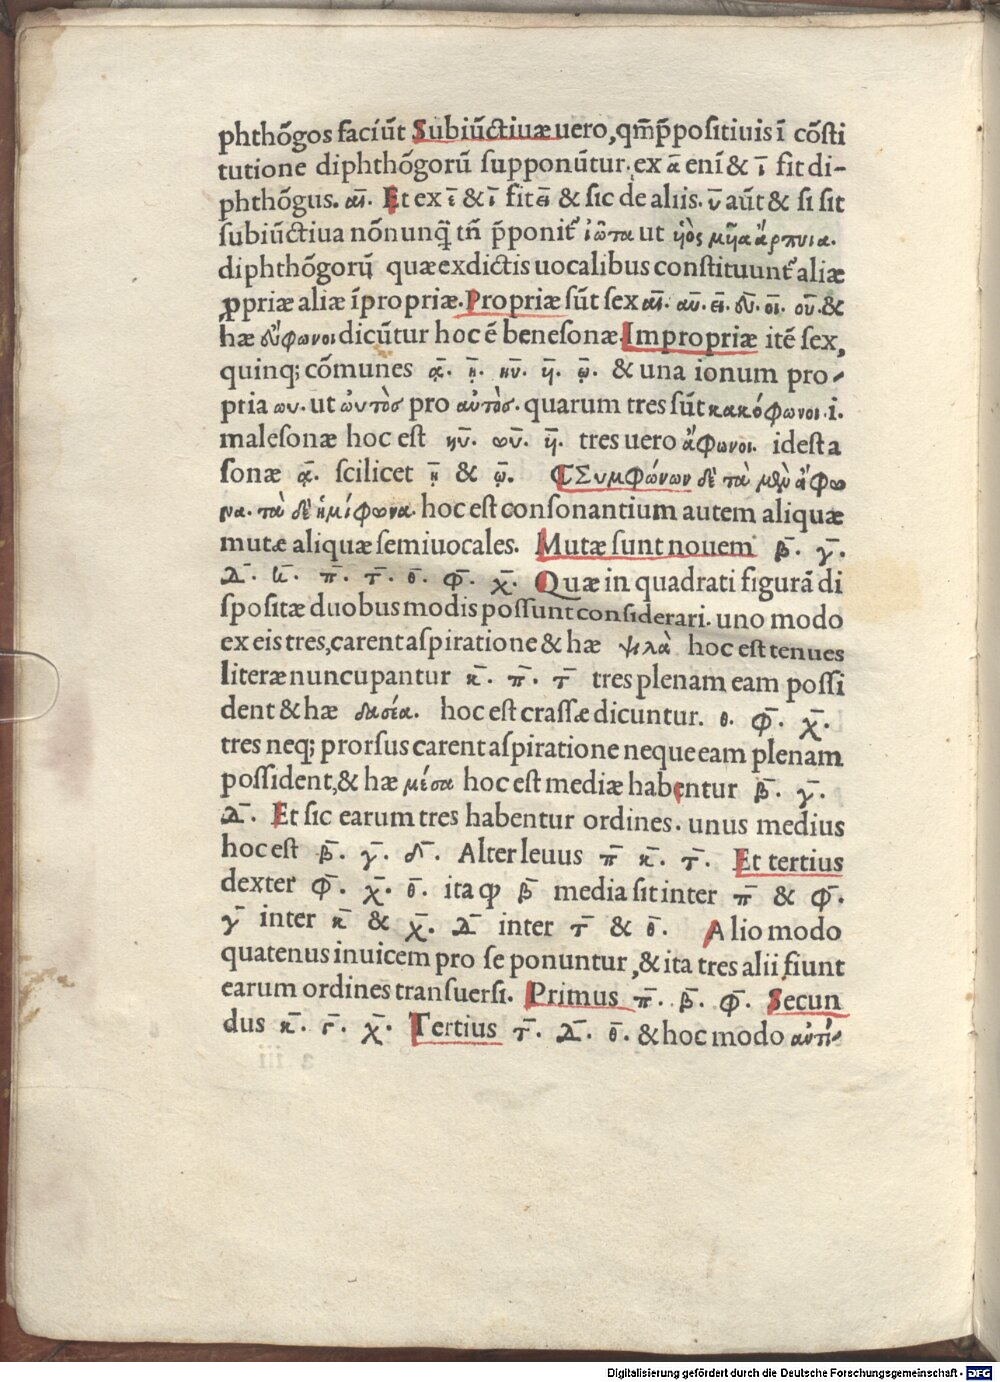 phthõgos faciũt Subiũctiuæ uero, qm̃ p̃positiuis ĩ cõsti
tutione diphthõgorũ supponũtur. ex ᾱ enĩ & ῑ fit di-
phthõgus. αῑ. Et ex ε̄ & ῑ fit εῑ & sic de aliis. ῡ aũt & si sit
subiũctiua nõnunq̃ tñ p̃ponit᷑ ἰῶτα ut ὑϊὸς μῦα ἅρπυια.
diphthõgorũ quæ ex dictis uocalibus constituunt᷑ aliæ
ꝓpriæ aliæ ĩpropriæ. Propriæ sũt sex αῑ. αῡ. εῑ. εῡ. οῑ. οῡ. &
hæ εὔφωνοι dicũtur hoc ẽ benesonæ. Impropriæ itẽ sex,
quinq; cõmunes ᾱͅ. ῃ̄. ηυ. υῑ. ῳ̄. & una ionum pro-
pria ωυ. ut ὠυτὸσ pro αὐτὸσ. quarum tres sũt κακόφωνοι .i.
malesonæ hoc est ηῡ. ωῡ. υῑ. tres uero ἄφωνοι. idest a
sonæ ᾱͅ. scilicet ῃ̄ & ῳ̄. ¶ Συμφώνων δὲ τὰ μὲν ἄφω
να. τὰ δὲ ἡμίφωνα. hoc est consonantium autem aliquæ
mutæ aliquæ semiuocales. Mutæ sunt nouem β̄. γ̄.
Δ̄. κ̄. π̄. τ̄. θ̄. φ̄. χ̄. Quæ in quadrati figurã di
spositæ duobus modis possunt considerari. uno modo
ex eis tres, carent aspiratione & hæ ψιλὰ hoc est tenues
literæ nuncupantur κ̄. π̄. τ̄ tres plenam eam possi
dent & hæ δασέα. hoc est crassæ dicuntur. θ. φ̄. χ̄.
tres neq; prorsus carent aspiratione neque eam plenam
possident, & hæ μέσα hoc est mediæ habentur β̄. γ̄.
Δ̄. Et sic earum tres habentur ordines. unus medius
hoc est β̄. γ̄. δ̄. Alter leuus π̄ κ̄. τ̄. Et tertius
dexter φ̄. χ̄. θ̄. ita ꝙ β̄ media sit inter π̄ & φ̄.
γ̄ inter κ̄ & χ̄. Δ̄ inter τ̄ & θ̄. Alio modo
quatenus inuicem pro se ponuntur, & ita tres alii fiunt
earum ordines transuersi. Primus π̄. β̄. φ̄. Secun
dus κ̄. γ̄. χ̄. Tertius τ̄. Δ̄. θ̄. & hoc modo ἀντί-
Digitalisierung gefördert durch die Deutsche Forschungsgemeinschaft - DFG